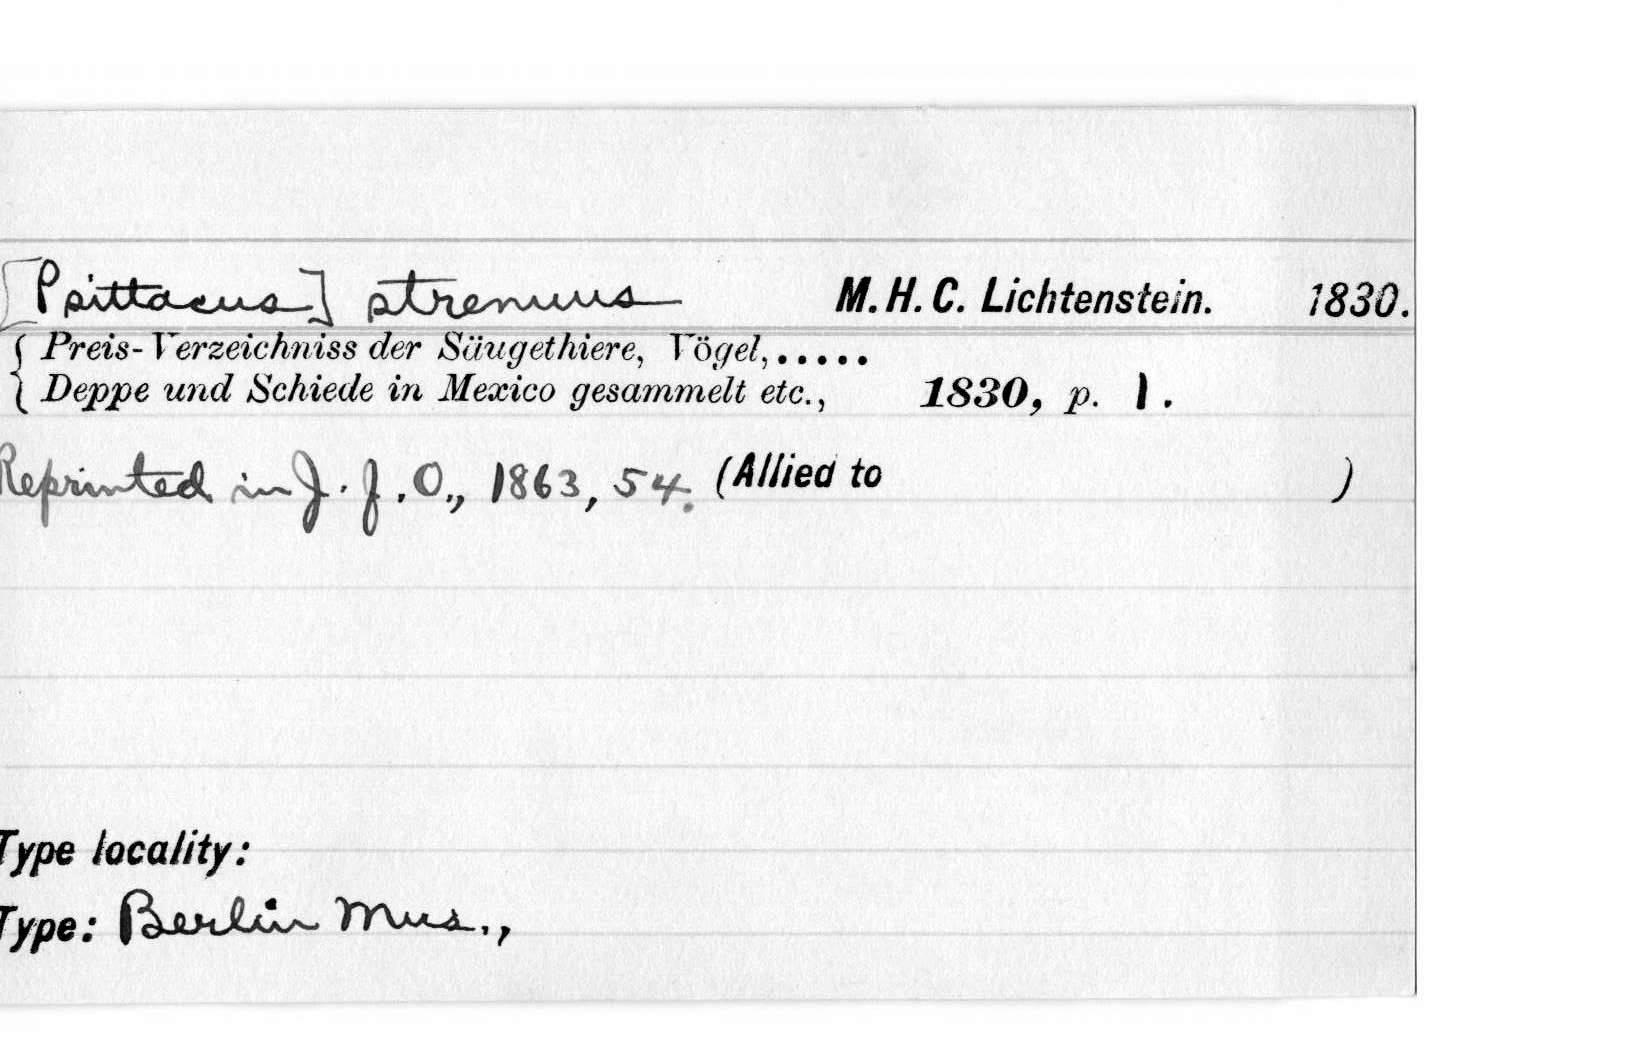 [Psittacus] strenuus M. H. C. Lichtenstein. 1830.
{ Preis-Verzeichniss der Säugethiere, Vögel,.....
{ Deppe und Schiede in Mexico gesammelt etc., 1830, p. 1.
Reprinted in J. f. O., 1863, 54. (Allied to )
Type locality:
Type: Berlin Mus.,